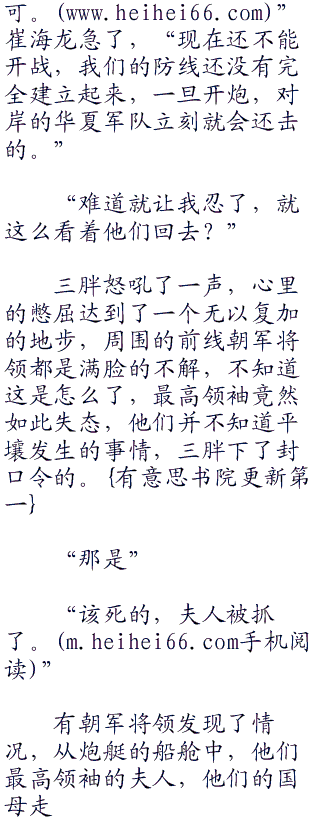 可。(www.heihei66.com)”
崔海龙急了，“现在还不能
开战，我们的防线还没有完
全建立起来，一旦开炮，对
岸的华夏军队立刻就会还击
的。”
“难道就让我忍了，就
这么看着他们回去？”
三胖怒吼了一声，心里
的憋屈达到了一个无以复加
的地步，周围的前线朝军将
领都是满脸的不解，不知道
这是怎么了，最高领袖竟然
如此失态，他们并不知道平
壤发生的事情，三胖下了封
口令的。{有意思书院更新第
一}
“那是”
“该死的，夫人被抓
了。(m.heihei66.com手机阅
读)”
有朝军将领发现了情
况，从炮艇的船舱中，他们
最高领袖的夫人，他们的国
母走